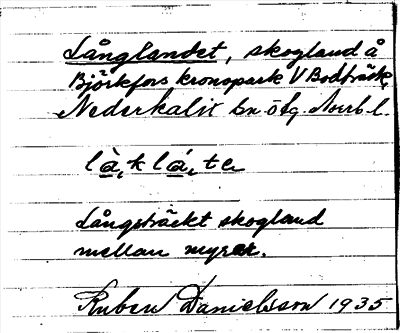 Långlandet, skogland å
Björkfors kronopark V Bodträsk,
Nederkalix sn ötg. Norrb. l.
là, k lá, te
Långsträckt skogland
mellan myrar.
Ruben Danielsson 1935